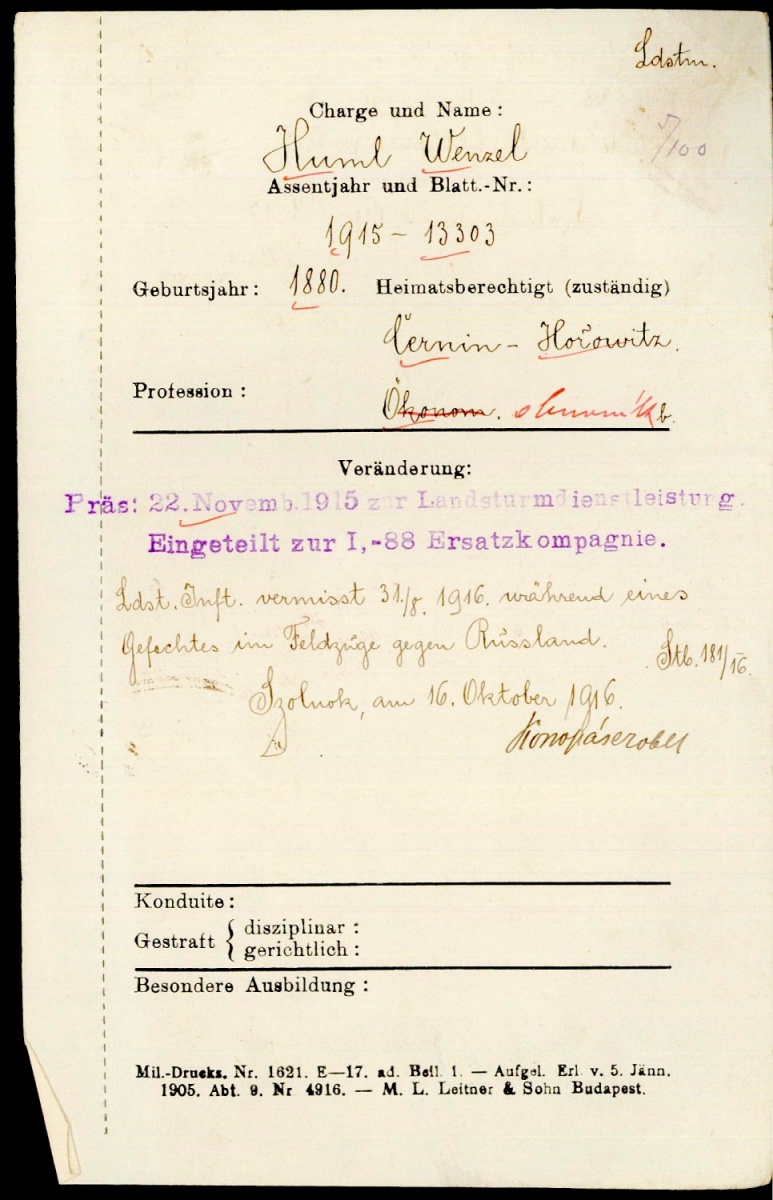 Ldstm.
Charge und Name:
Huml Wenzel
7/100
Assentjahr und Blatt.-Nr.:
1915 – 13303
Geburtsjahr: 1880. Heimatsberechtigt (zuständig)
Černin – Hořowitz.
Profession: Ökonom.
Veränderung:
Präs: 22. Novemb. 1915 zur Landsturmdienstleistung.
Eingeteilt zur I,-88 Ersatzkompagnie.
Ldst. Inft. vermisst 31./8. 1916. während eines
Gefechtes im Feldzüge gegen Russland. Stb. 181/16.
Szolnok, am 16. Oktober 1916.
Konduite:
Gestraft { disziplinar:
gerichtlich:
Besondere Ausbildung:
Mil.-Drucks. Nr. 1621. E—17. ad. Beil. 1. — Aufgel. Erl. v. 5. Jänn.
1905. Abt. 9. Nr 4916. — M. L. Leitner & Sohn Budapest.